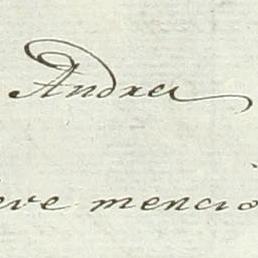 Andrea
eve menció